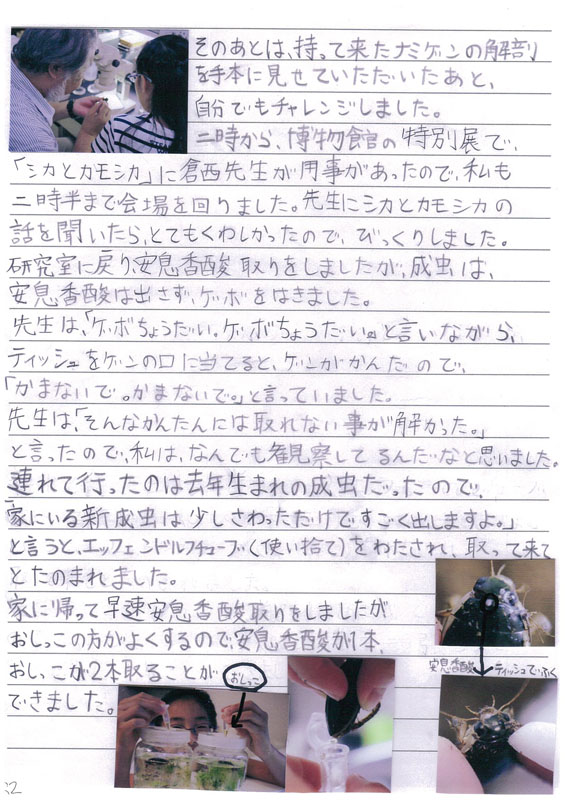 そのあとは、持って来たナミゲンの解剖
を手本に見せていただいたあと、
自分でもチャレンジしました。
二時から、博物館の特別展で、
「シカとカモシカ」に倉西先生が用事があったので、私も
二時半まで会場を回りました。先生にシカとカモシカの
話を聞いたら、とてもくわしかったので、びっくりしました。
研究室に戻り、安息香酸取りをしましたが、成虫は、
安息香酸は出さず、ゲボをはきました。
先生は、「ゲボちょうだい。ゲボちょうだい。」と言いながら、
ティッシュをゲンの口に当てると、ゲンがかんだので、
「かまないで。かまないで。」と言っていました。
先生は、「そんなかんたんには取れない事が解かった。」
と言ったので、私は、なんでも観察してるんだなと思いました。
連れて行ったのは去年生まれの成虫だったので、
「家にいる新成虫は少しさわっただけですごく出しますよ。」
と言うと、エッフェンドルフチューブ(使い捨て)をわたされ、取って来て
とたのまれました。
家に帰って早速安息香酸取りをしましたが
おしっこの方がよくするので、安息香酸が1本、
おしっこが2本取ることが
できました。
おしっこ
安息香酸
ティッシュでふく